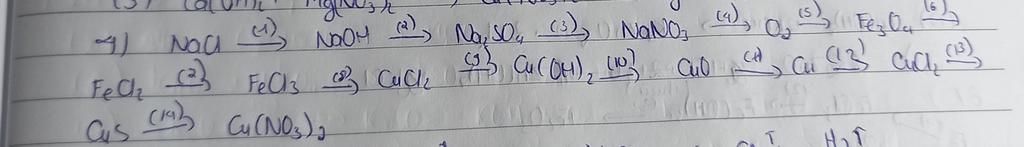 (3) Ca(OH)₂ Mg(NO₃)₂
4) NaCl (1)→ NaOH (2)→ Na₂SO₄ (3)→ NaNO₃ (4)→ O₂ (5)→ Fe₃O₄ (6)→
FeCl₂ (7)→ FeCl₃ (8)→ CuCl₂ (9)→ Cu(OH)₂ (10)→ CuO (11)→ Cu (12)→ CuCl₂ (13)→
CuS (14)→ Cu(NO₃)₂
H₂↑